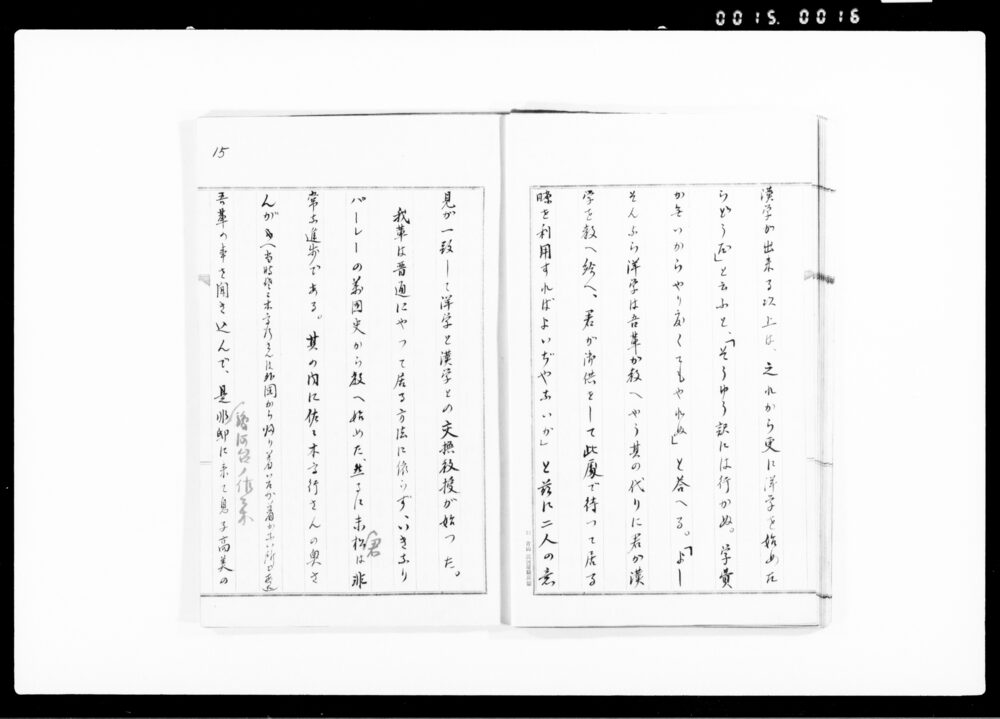 0015. 0016
漢学が出来る以上は、之れから更に洋学を始めた
らどうだ」と云ふと、「そうゆう訳には行かぬ。学費
が無いからやり度くてもやれぬ」と答へる。「よし
そんなら洋学は吾輩が教へやう其の代りに君が漢
学を教へ給へ、君が御供をして此處で待つて居る
暇を利用すればよいぢやないか」と茲に二人の意
見が一致して洋学と漢学との交換教授が始つた。
我輩は普通にやつて居る方法に依らず、いきなり
パーレーの萬国史から教へ始めた、然るに末松は非
常な進歩である。其の内に佐々木高行さんの奥さ
んが
吾輩の事を聞き込んで、是非邸に来て息子高美の
15